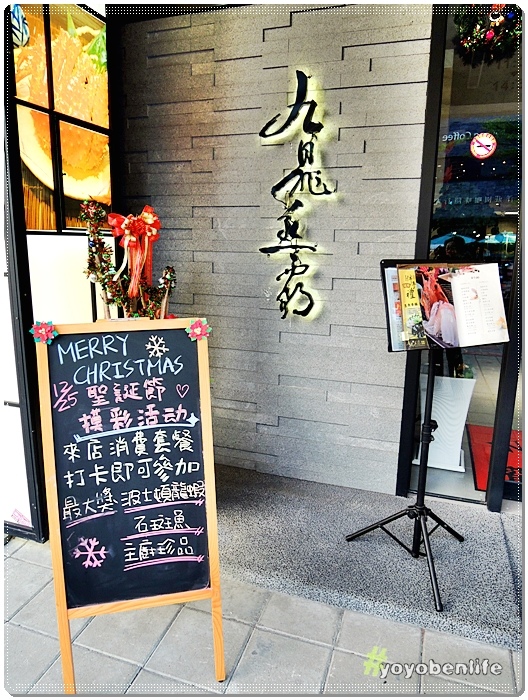 九晁蒸鍋
MERRY
CHRISTMAS
12/25 聖誕節
摸彩活动
來店消費套餐
打卡即可參加
最大獎 波士頓龍蝦
石斑魚
主廚珍品
Coffee
禮
#yoyobenlife